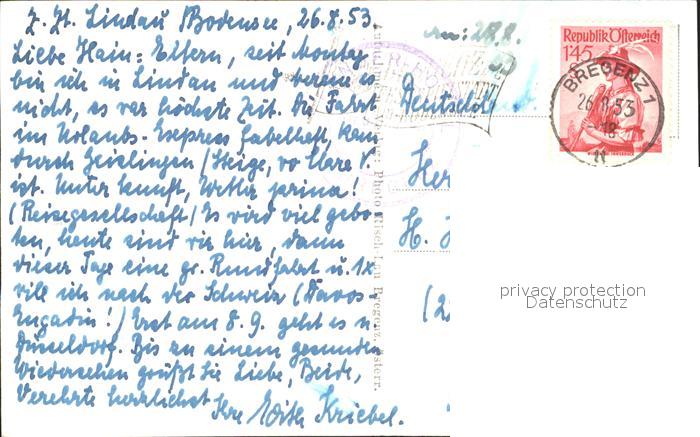 Z. Zt. Lindau / Bodensee, 26.8.53
Liebe Hain-Eltern, seit Montag
bin ich in Lindau und bereue es
nicht, es war höchste Zeit. Die Fahrt
im Urlaubs-Express fabelhaft, kam
durch Geislingen / Steige, wo Clara V.
ist. Unterkunft, Wetter prima!
(Reisegesellschaft) Es wird viel gebo-
ten, heute sind wir hier, dann
dieser Tage eine gr. Rundfahrt u. 1x
will ich nach der Schweiz (Davos-
Engadin!) Erst am 8. 9. geht es n.
Düsseldorf. Bis zu einem gesunden
Wiedersehen grüßt Sie Liebe, Beide,
Verehrte herzlichst
Ihre Edith Kriebel.
an: 28.8.
Republik Österreich
1'45
BREGENZ 1
26.8.53
-18
Deutschld
Her
H.
(2
Photo Risch-Lau Bregenz, Österr.
privacy protection
Datenschutz